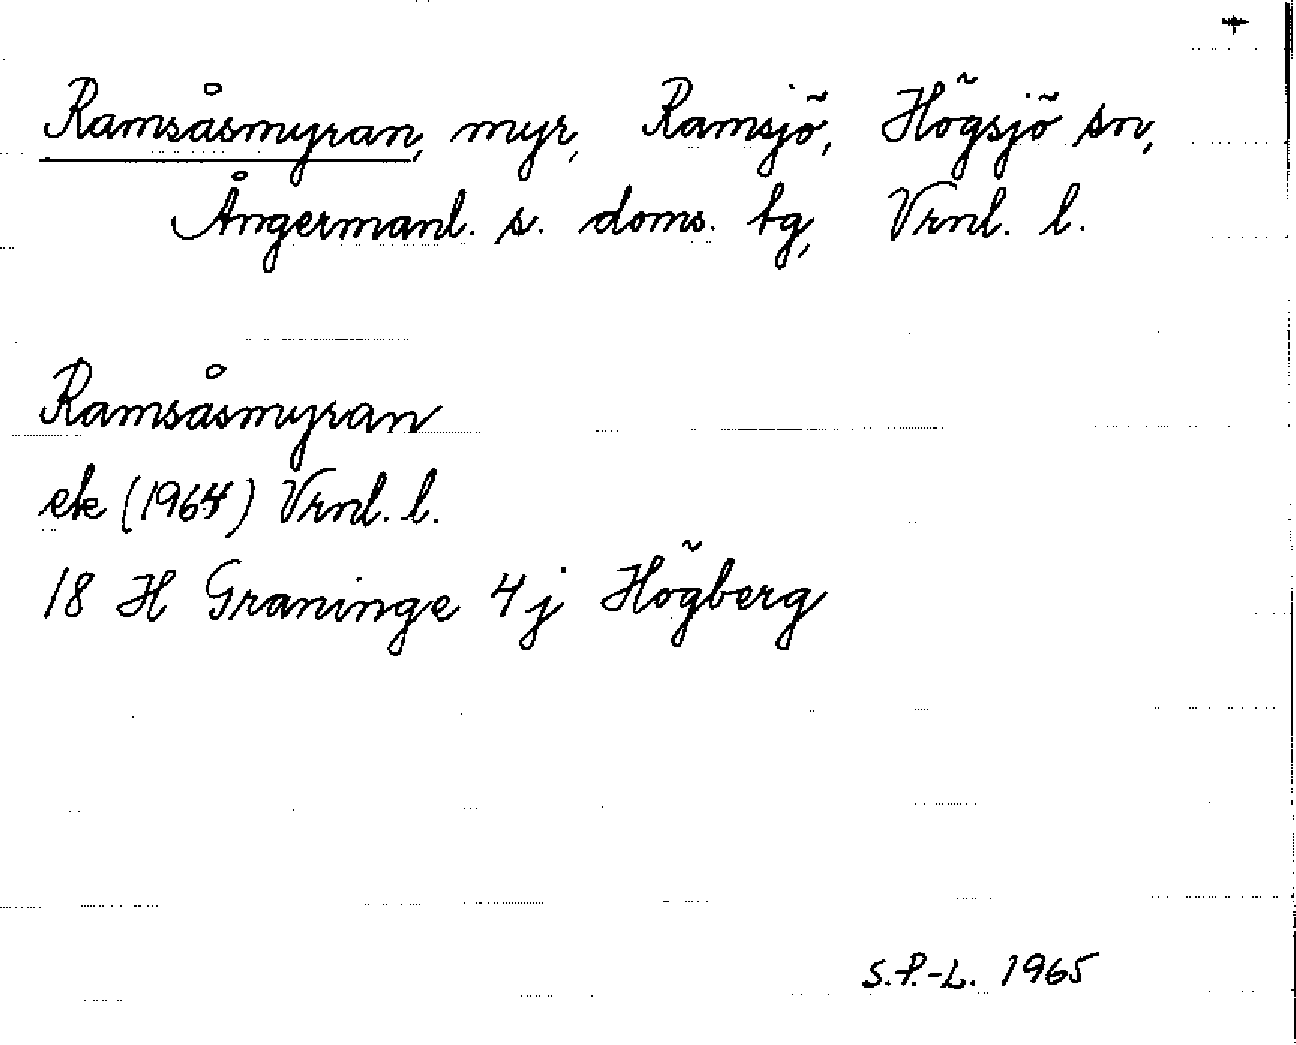 Ramsåsmyran, myr, Ramsjö, Högsjö sn,
Ångermanl. s. doms. tg, Vrnl. l.
Ramsåsmyran
ek (1964) Vrnl. l.
18 H Graninge 4j Högberg
S.P.-L. 1965